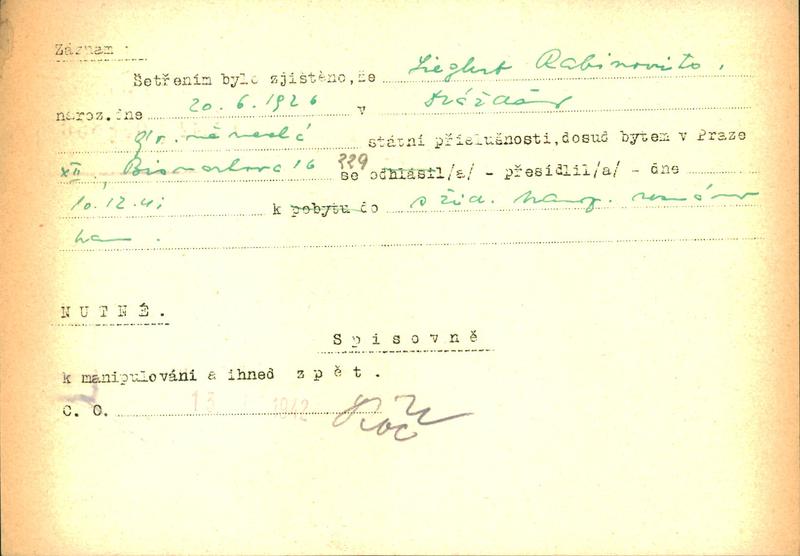 Záznam :
Šetřením bylo zjištěno, že Siegbert Rabinowitz.
naroz. dne 20.6.1926 v Drážďan
německé státní příslušnosti, dosud bytem v Praze
XII, Bismarkova 16 229 se odhlásil/a/ - přesídlil/a/ - dne
10.12.41 k pobytu do s žid. transp.
.
NUTNÉ.
Spisovně
k manipulování a ihned zpět.
C. O. 13 1942